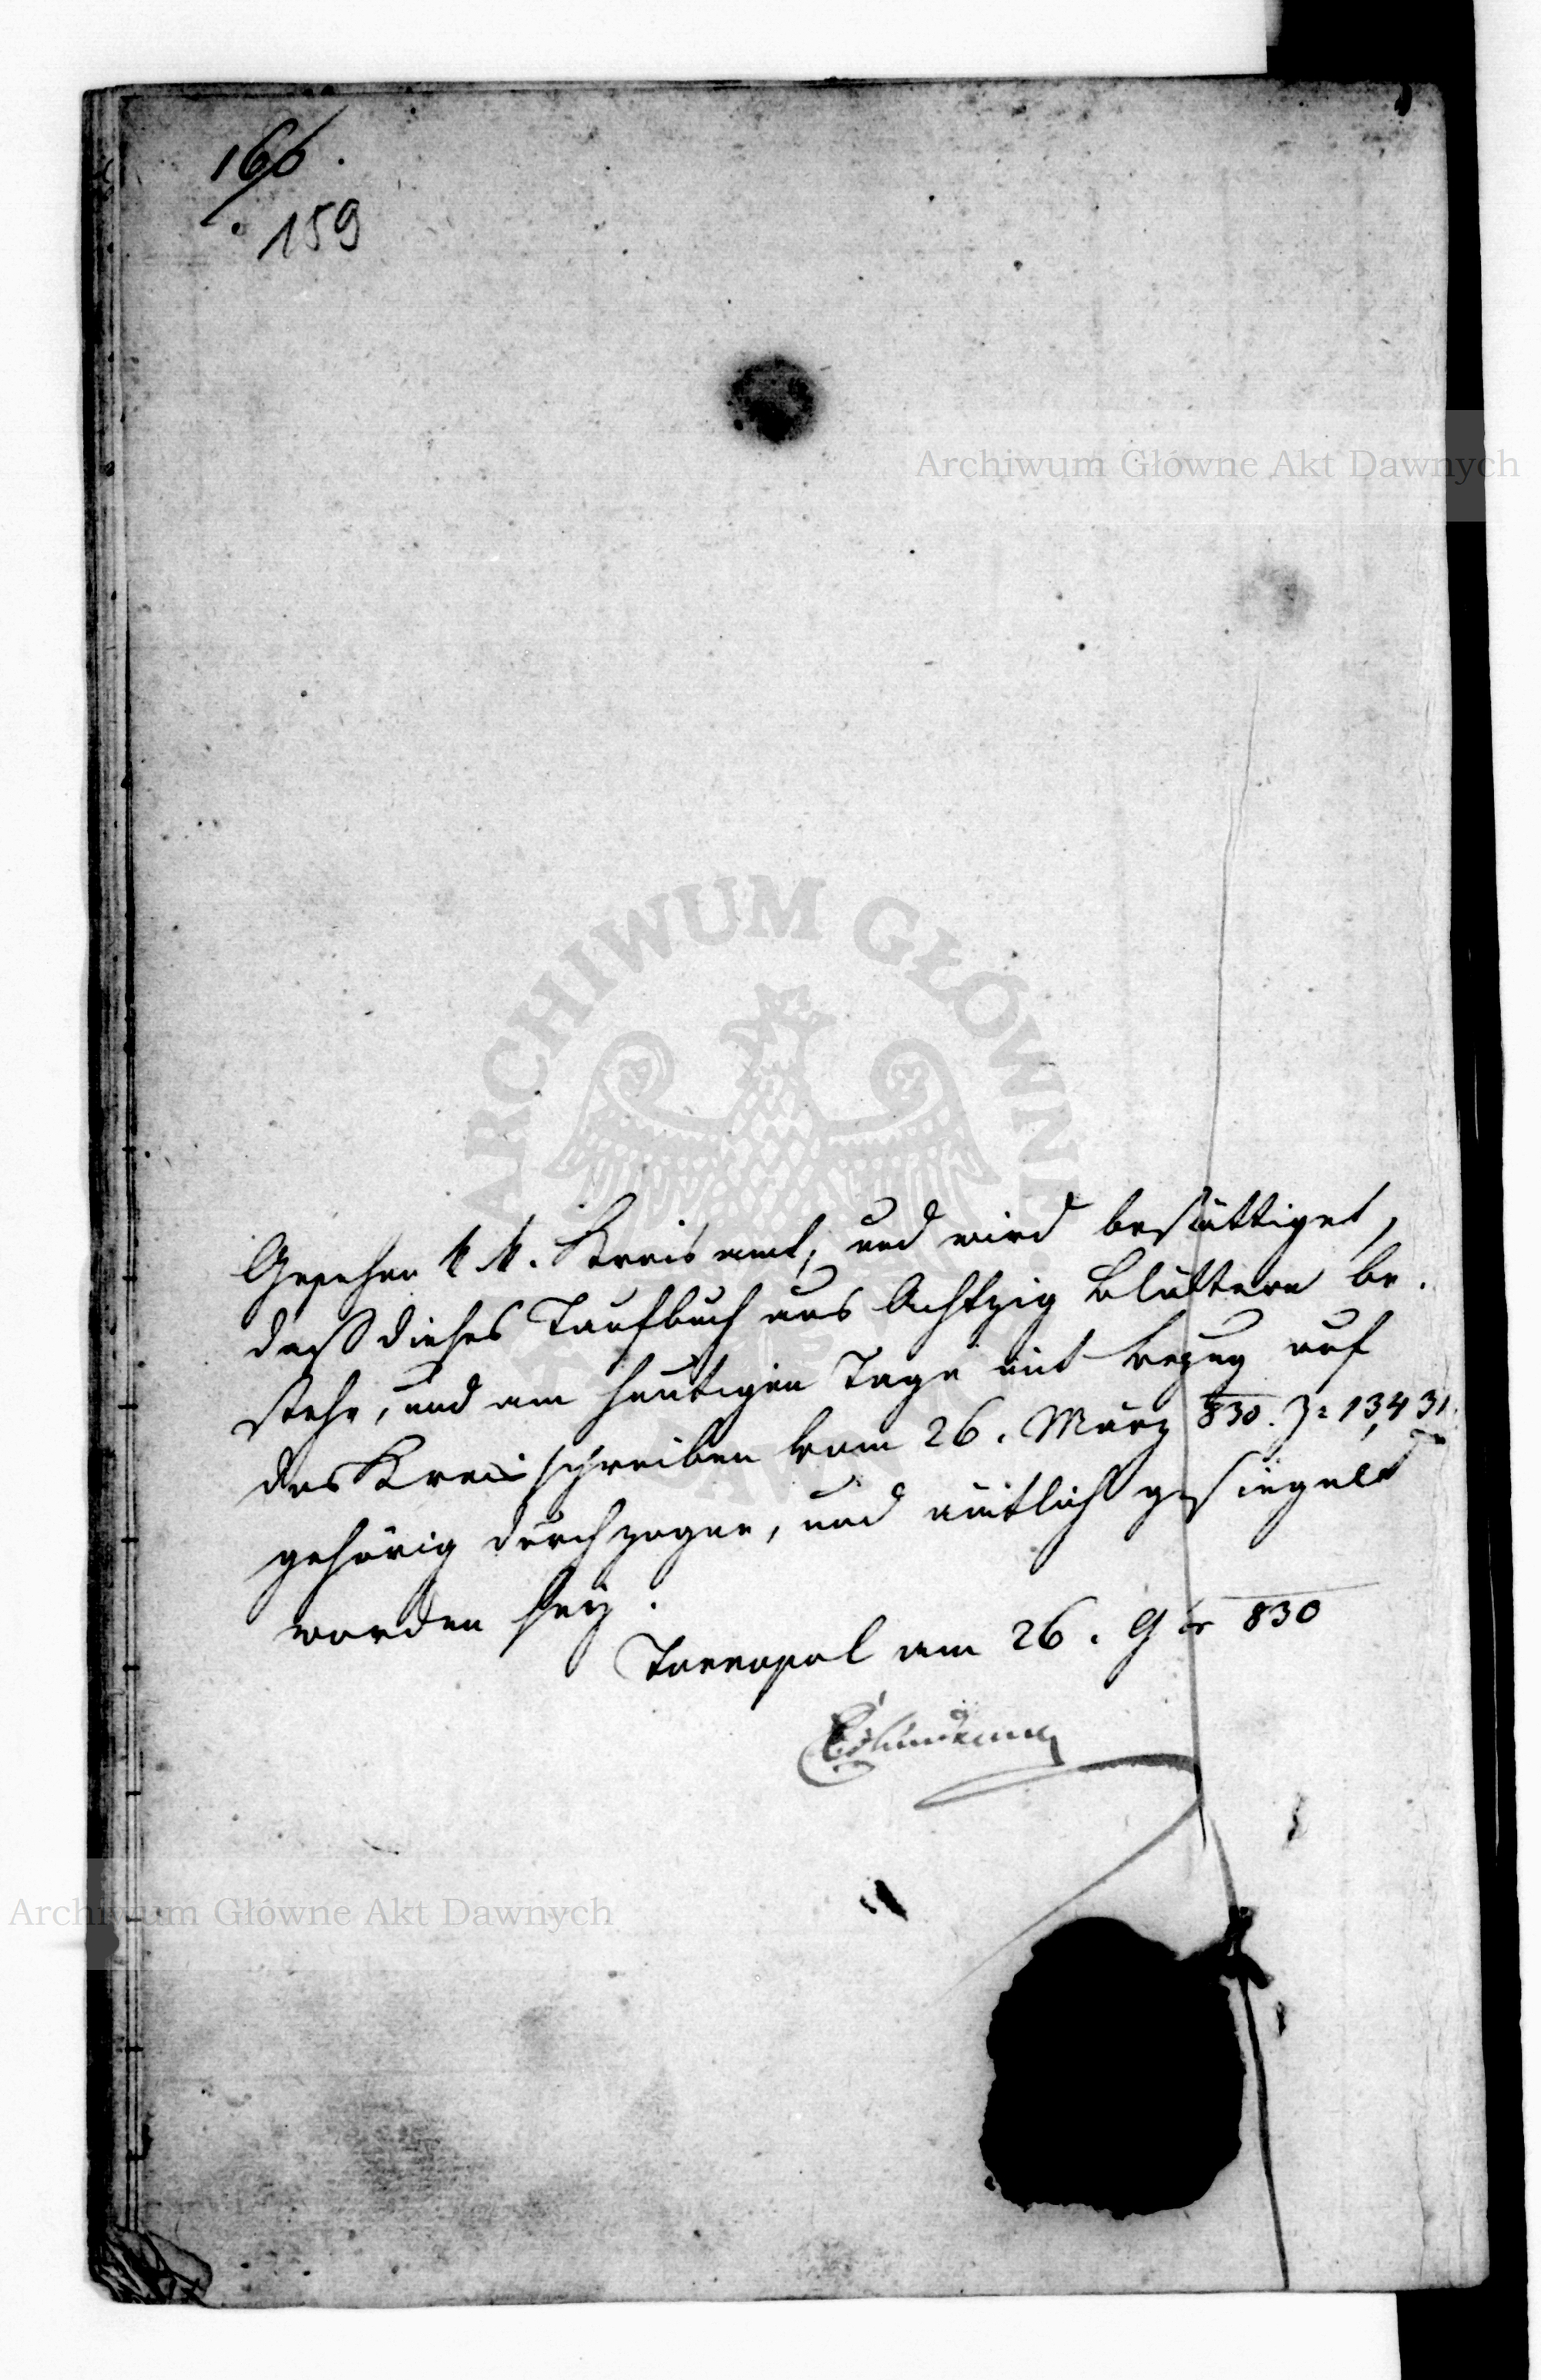 166.
159
Archiwum Główne Akt Dawnych
ARCHIWUM GŁÓWNE
Gesehen k. k. Kreisamt, und wird bestättiget,
daß dieses Taufbuch aus Achtzig Blättern be.
stehe, und am heutigen Tage mit Bezug auf
das Kreisschreiben vom 26. März 830. Z: 13,431.
gehörig durchzogen, und ämtlich gesiegelt
worden sey.
Tarnopol am 26. 9br 830
Archiwum Główne Akt Dawnych